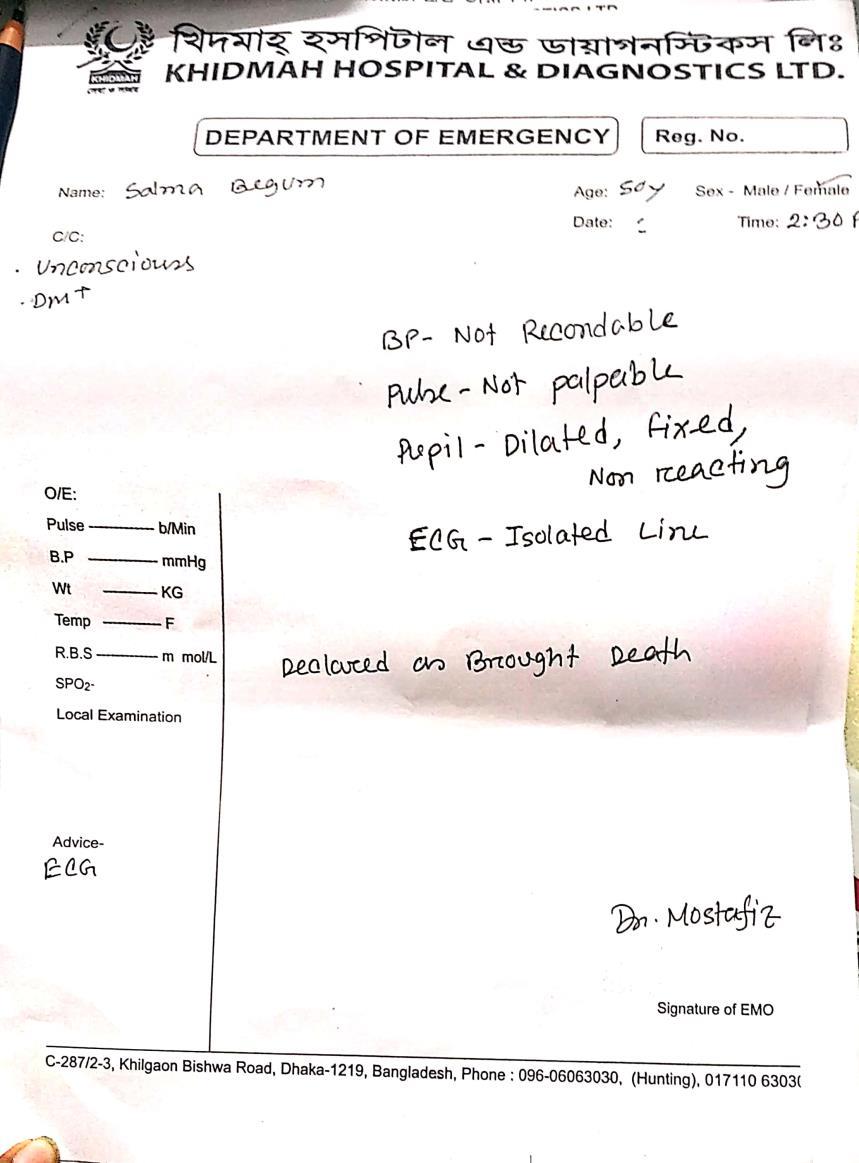 খিদমাহ্ হসপিটাল এন্ড ডায়াগনস্টিকস লিঃ
KHIDMAH HOSPITAL & DIAGNOSTICS LTD.
KHIDMAH
DEPARTMENT OF EMERGENCY
Reg. No.
Name: Salma Begum
Age: 50y Sex - Male / Female
Date:
Time: 2:30 P
C/C:
· Unconscious
· DM +
BP- Not Recondable
Pulse - Not palpable
Pupil - Dilated, fixed,
Non reacting
ECG - Isolated Line
O/E:
Pulse ——— b/Min
B.P ——— mmHg
Wt ——— KG
Temp ——— F
R.B.S ——— m mol/L
SPO2-
Local Examination
Declared as Brought Death
Advice-
ECG
Dr. Mostafiz
Signature of EMO
C-287/2-3, Khilgaon Bishwa Road, Dhaka-1219, Bangladesh, Phone : 096-06063030, (Hunting), 017110 6303